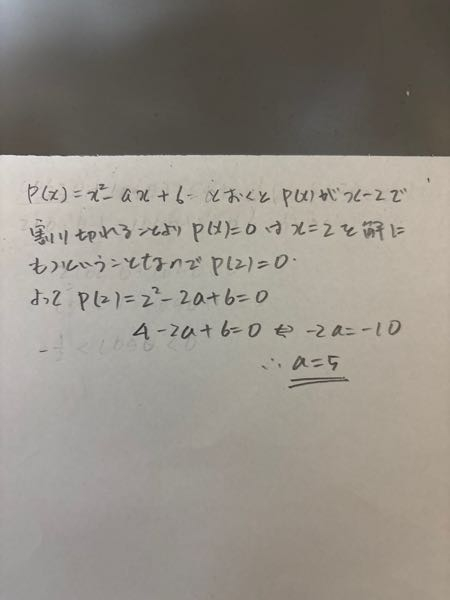 P(x)=x²-ax+6 とおくと P(x)がx-2で
割り切れることより P(x)=0 は x=2 を解に
もつということなので P(2)=0.
よって P(2)=2²-2a+6=0
4-2a+6=0 ⇔ -2a=-10
∴ a=5